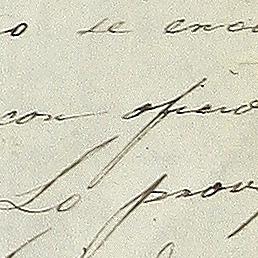 o se enco
con oficio
Lo prov